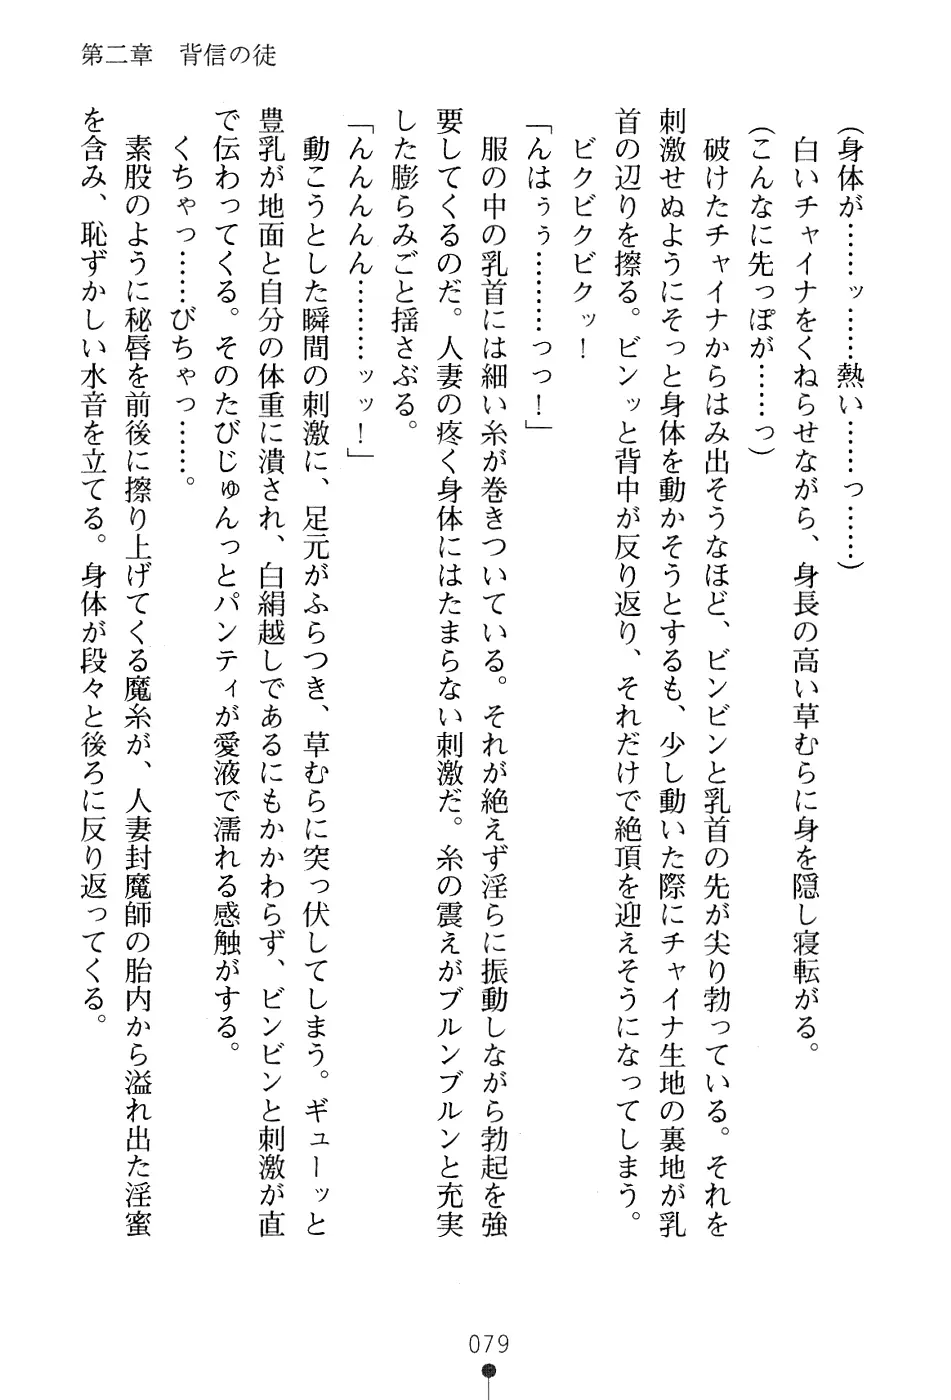 第二章　背信の徒
（身体が……ッ……熱い……っ……）
　白いチャイナをくねらせながら、身長の高い草むらに身を隠し寝転がる。
（こんなに先っぽが……っ）
　破けたチャイナからはみ出そうなほど、ビンビンと乳首の先が尖り勃っている。それを
刺激せぬようにそっと身体を動かそうとするも、少し動いた際にチャイナ生地の裏地が乳
首の辺りを擦る。ビンッと背中が反り返り、それだけで絶頂を迎えそうになってしまう。
　ビクビクビクッ！
「んはぅぅ………っっ！」
　服の中の乳首には細い糸が巻きついている。それが絶えず淫らに振動しながら勃起を強
要してくるのだ。人妻の疼く身体にはたまらない刺激だ。糸の震えがブルンブルンと充実
した膨らみごと揺さぶる。
「んんんんん………ッッ！」
　動こうとした瞬間の刺激に、足元がふらつき、草むらに突っ伏してしまう。ギューッと
豊乳が地面と自分の体重に潰され、白絹越しであるにもかかわらず、ビンビンと刺激が直
で伝わってくる。そのたびじゅんっとパンティが愛液で濡れる感触がする。
　くちゃっ……びちゃっ……。
　素股のように秘唇を前後に擦り上げてくる魔糸が、人妻封魔師の胎内から溢れ出た淫蜜
を含み、恥ずかしい水音を立てる。身体が段々と後ろに反り返ってくる。
079